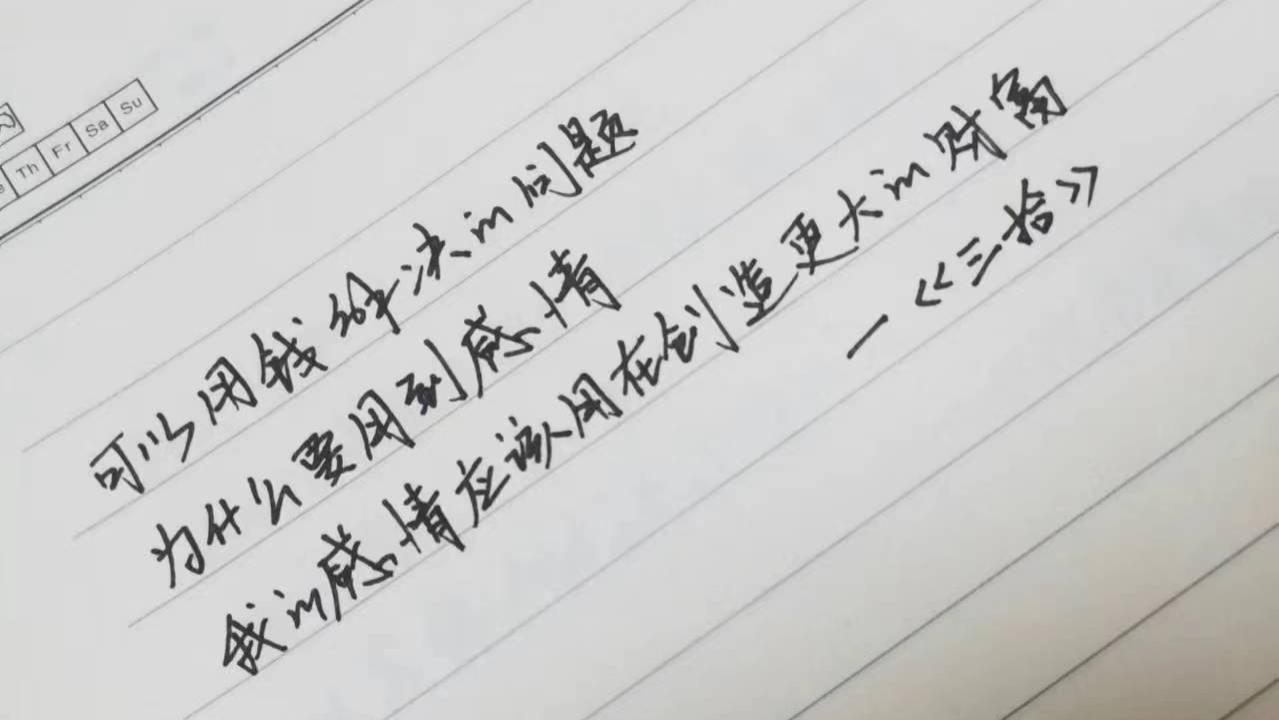 Th Fr Sa Su
可以用钱解决的问题
为什么要用到感情
我的感情应该用在创造更大的财富
—《三拾》